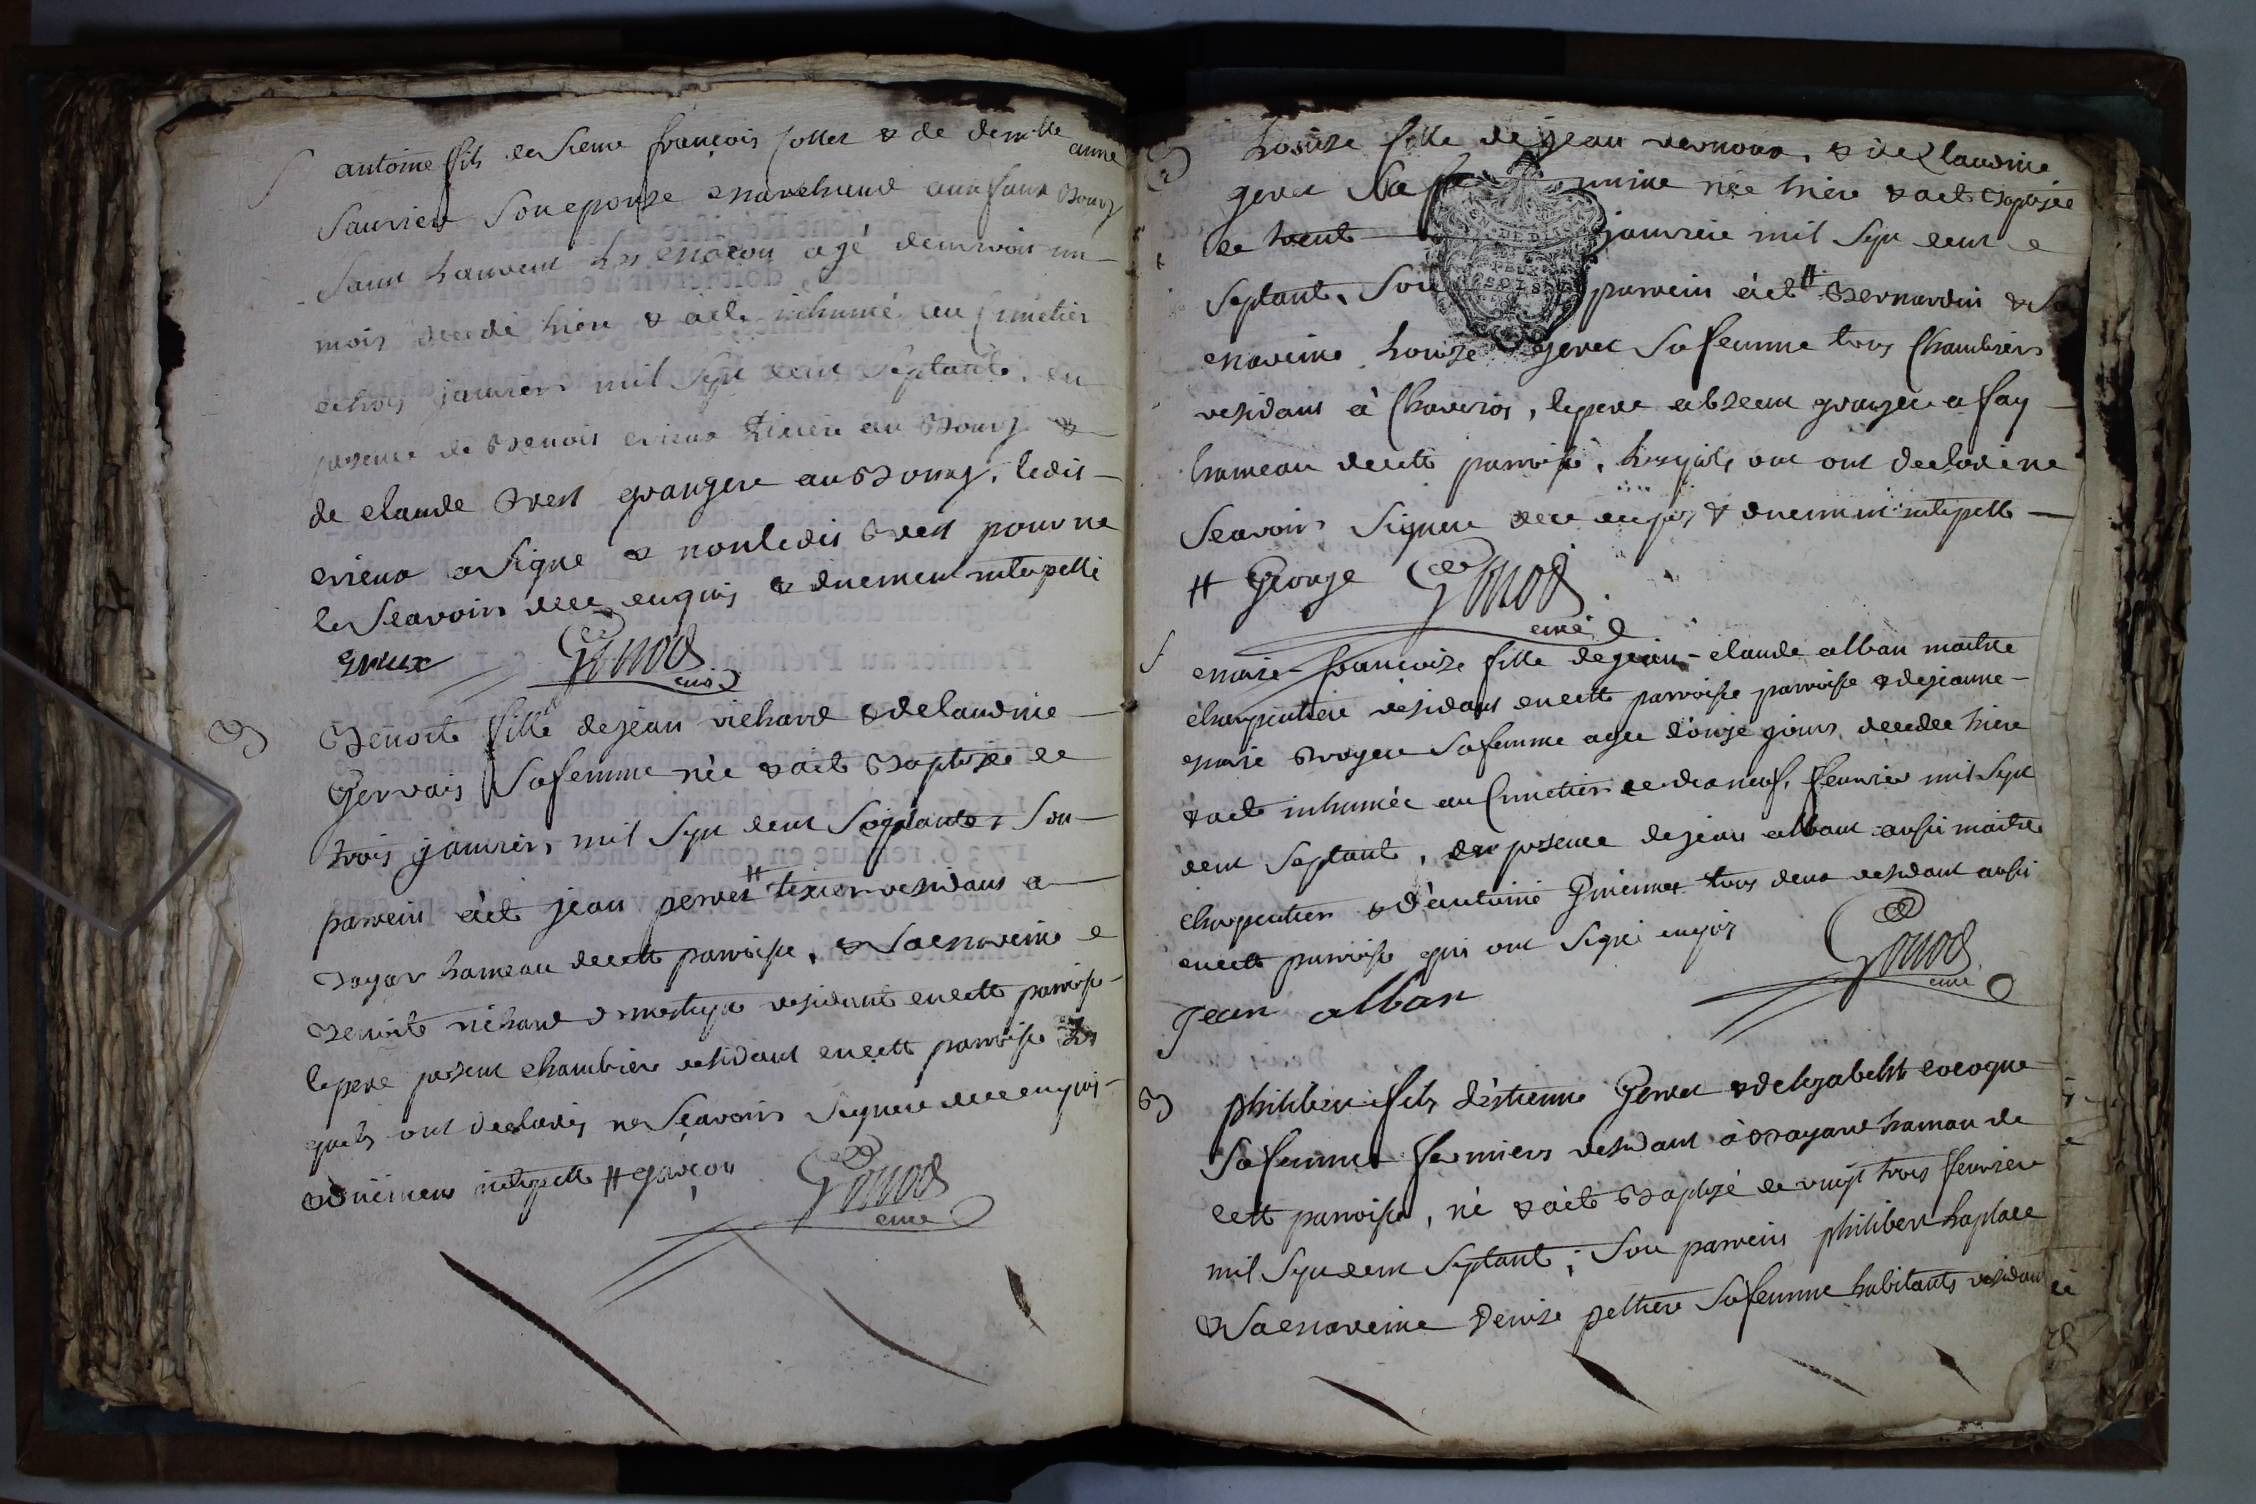 S
antoine fils de Sieur françois Collet & de demlle anne
Saurier Son epouse marchand aux faux Bourg
Saint Laurent Les macon agé d'environ un
mois decedé hier & a été inhumé au Cimetier
ce trois janvier mil Sept cent Septante, en
presence de Benois erieux tixier au Bourg &
de claude Brest granger au Bourg, ledit
erieux a Signé & non ledit Brest pour ne
le Sçavoir de ce enquis & duement interpellé
Erieux Gonod curé
B
Benoite fille de jean richard & de laudine
Gervais Sa femme née & a été Baptisée le
trois janvier, mil Sept cent Septante, Son
parrein a été jean perret # tixier residant a
Bayar hameau de cette parroisse, & Sa mareine
Benoite richard domestique residante en cette parroisse
le pere present chambrier residant en cette parroisse Les
quels ont declarés ne Sçavoir Signer de ce enquis
& duement interpellé # garçon Gonod curé
B
Louise fille de jean vernoux, & de Claudine
geret Sa femme née hier & a été Baptisée
le trente janvier mil Sept cent
Septante, Son parrein a été # Bernardin & Sa
mareine Louise geret Sa femme tous Chambriers
residans à Chaveirias, le pere absent granger a fay
hameau de cette parroisse, Lesquels ont declaré ne
Sçavoir Signer de ce enquis & duement interpellé
# George Gonod curé
S
marie françoise fille de jean claude alban maitre
charpentier residant en cette parroisse parroisse & de jeanne
marie Broyer Sa femme agée d'onze jours decedée hier
& a été inhumée au Cimetier le dixneuf, fevrier mil Sept
cent Septante, en presence de jean alban aussi maitre
charpentier & d'antoine Guiennet tous deux residant aussi
en cette parroisse qui ont Signé enquis
Gonod curé
jean alban
B
philibert fils d'estienne Gerret & d'elizabeth cocogne
Sa femme fermiers residant à Bayard hamau de
cette parroisse, né & a été Baptisé le vingt trois fevrier
mil Sept cent Septante; Son parrein philibert Laplace
& Sa mareine Denise peltier Sa femme habitants residant